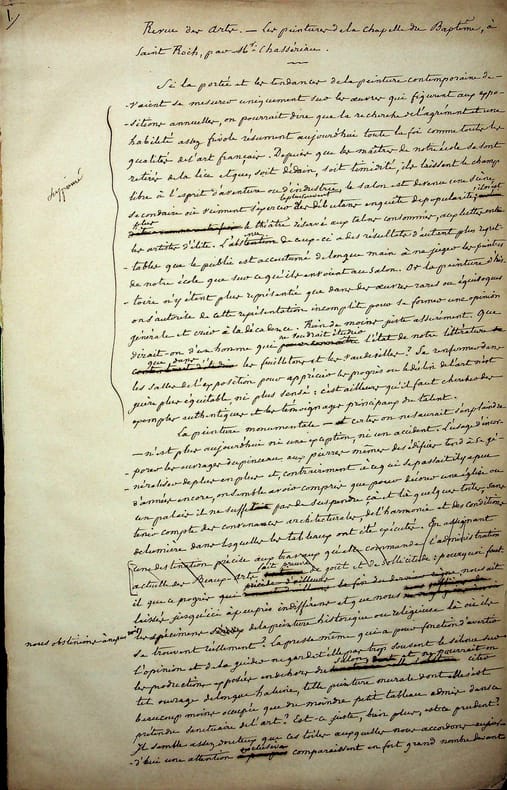 1
Revue des Arts. — Les peintures de la chapelle du Baptême, à
Saint Roch, par Mr. Chassériau.
Si la portée et les tendances de la peinture contemporaine de-
-vaient se mesurer uniquement sur les œuvres qui figurent aux expo-
-sitions annuelles, on pourrait dire que la recherche de l'agrément et une
habileté assez frivole résument aujourd'hui toute la foi comme toutes les
qualités de l'art français. Depuis que les maîtres de notre école se sont
retirés de la lice et que, soit dédain, soit timidité, ils laissent le champ
libre à l'esprit d'aventure ou d'industrie, le salon est devenu une scène
secondaire où viennent s'exercer les débutans en quête de popularité
le théâtre réservé aux talens consommés, aux
les artistes d'élite. L'abstention de ceux-ci a des résultats d'autant plus regret-
-tables que le public est accoutumé de longue main à ne juger les peintres
de notre école que sur ce qu'ils envoient au salon. Or la peinture d'his-
-toire n'y étant plus représentée que dans des œuvres rares ou équivoques
on s'autorise de cette représentation incomplète pour se former une opinion
générale et crier à la décadence. Rien de moins juste assurément. Que
dirait-on d'un homme qui ne voudrait étudier l'état de notre littérature
que dans les feuilletons et les vaudevilles? Se renfermer dans
les salles de l'exposition pour apprécier les progrès ou le déclin de l'art n'est
guère plus équitable, ni plus sensé: c'est ailleurs qu'il faut chercher des
exemples authentiques et les témoignages principaux du talent.
La peinture monumentale — et certes on ne saurait s'en plaindre
— n'est plus aujourd'hui ni une exception, ni un accident. L'usage d'incor-
-porer les ouvrages du pinceau aux pierres mêmes des édifices tend à se gé-
-néraliser de plus en plus et, contrairement à ce qui se passait il y a peu
d'années encore, on semble avoir compris que pour décorer une église ou
un palais il ne suffit pas de suspendre çà et là quelques toiles, sans
tenir compte des convenances architecturales, de l'harmonie et des conditions
de lumière dans lesquelles les tableaux ont été exécutés. En assignant
une destination précise aux travaux qu'elle commande, l'administration
actuelle des Beaux-Arts fait preuve de goût et de sollicitude: pourquoi faut-
il que ce progrès nous ait
laissés jusqu'ici à peu près indifférens et que nous
nous obstinions à ne pas voir les spécimens de la peinture historique ou religieuse là où ils
se trouvent réellement? La presse même qui a pour fonction d'avertir
l'opinion et de la guider ne garde-t-elle pas trop souvent le silence sur
les productions exposées en dehors du salon et ne pourrait-on citer
tel ouvrage de longue haleine, telle peinture murale dont elle s'est
beaucoup moins occupée que du moindre petit tableau admis dans ce
prétendu sanctuaire de l'art? Est-ce juste, bien plus, est-ce prudent?
Il semble assez douteux que ces toiles auxquelles nous accordons aujour-
-d'hui une attention exclusive comparaissent en fort grand nombre devant